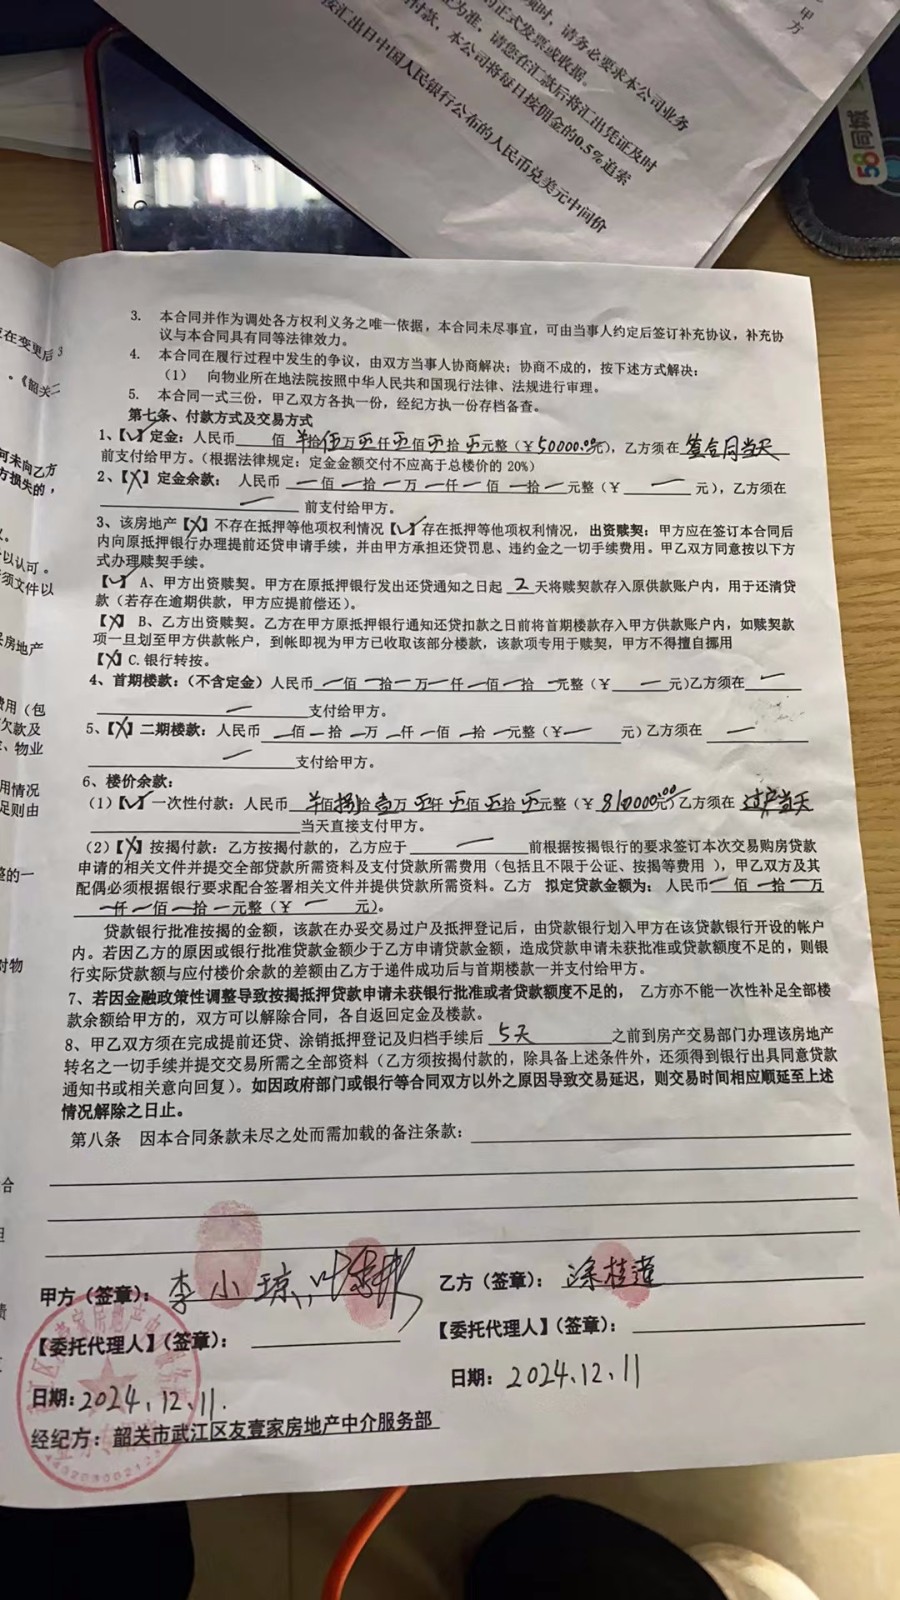 甲
方
项时，请务必要求本公司业务
的正式发票或收据。
为准，请您在汇款后将汇出凭证及时
付款，本公司将每日按佣金的0.5%追索
按汇出日中国人民银行公布的人民币兑美元中间价
58同城
应在变更后 3
。《韶关二
何未向乙方
方损失的，
以认可。
须文件以
房地产
费用（包
欠款及
、物业
用情况
足则由
整的一
对物
合
3. 本合同并作为调处各方权利义务之唯一依据，本合同未尽事宜，可由当事人约定后签订补充协议，补充协
议与本合同具有同等法律效力。
4. 本合同在履行过程中发生的争议，由双方当事人协商解决；协商不成的，按下述方式解决：
（1） 向物业所在地法院按照中华人民共和国现行法律、法规进行审理。
5. 本合同一式三份，甲乙双方各执一份，经纪方执一份存档备查。
第七条、付款方式及交易方式
1、【√】定金：人民币 佰 拾伍万零仟零佰零拾零元整（￥50000.00元），乙方须在 签合同当天
前支付给甲方。（根据法律规定：定金金额交付不应高于总楼价的 20%）
2、【X】定金余款： 人民币 一佰 一拾 一万 一仟 一佰 一拾 一元整（￥ 一 元），乙方须在
一 前支付给甲方。
3、该房地产【X】不存在抵押等他项权利情况【√】存在抵押等他项权利情况，出资赎契：甲方应在签订本合同后
内向原抵押银行办理提前还贷申请手续，并由甲方承担还贷罚息、违约金之一切手续费用。甲乙双方同意按以下方
式办理赎契手续。
【√】 A、甲方出资赎契。甲方在原抵押银行发出还贷通知之日起 2 天将赎契款存入原供款账户内，用于还清贷
款（若存在逾期供款，甲方应提前偿还）。
【X】 B、乙方出资赎契。乙方在甲方原抵押银行通知还贷扣款之日前将首期楼款存入甲方供款账户内，如赎契款
项一旦划至甲方供款帐户，到帐即视为甲方已收取该部分楼款，该款项专用于赎契，甲方不得擅自挪用
【X】C.银行转按。
4、首期楼款：（不含定金）人民币 一佰 一拾 一万 一仟 一佰 一拾 一元整（￥ 一 元)乙方须在 一
一 支付给甲方。
5、【X】二期楼款：人民币 一佰 一拾 一万 一仟 一佰 一拾 一元整（￥ 一 元）乙方须在 一
一 支付给甲方。
6、楼价余款：
（1）【√】一次性付款：人民币 佰捌拾壹万零仟零佰零拾零元整（￥810000.00元）乙方须在 过户当天
当天直接支付甲方。
（2）【X】按揭付款：乙方按揭付款的，乙方应于 一 前根据按揭银行的要求签订本次交易购房贷款
申请的相关文件并提交全部贷款所需资料及支付贷款所需费用（包括且不限于公证、按揭等费用 ），甲乙双方及其
配偶必须根据银行要求配合签署相关文件并提供贷款所需资料。乙方 拟定贷款金额为： 人民币 一 佰 一拾 一万
一仟 一佰 一拾 一元整（￥ 一 元）。
贷款银行批准按揭的金额，该款在办妥交易过户及抵押登记后，由贷款银行划入甲方在该贷款银行开设的帐户
内。若因乙方的原因或银行批准贷款金额少于乙方申请贷款金额，造成贷款申请未获批准或贷款额度不足的，则银
行实际贷款额与应付楼价余款的差额由乙方于递件成功后与首期楼款一并支付给甲方。
7、若因金融政策性调整导致按揭抵押贷款申请未获银行批准或者贷款额度不足的， 乙方亦不能一次性补足全部楼
款余额给甲方的，双方可以解除合同，各自返回定金及楼款。
8、甲乙双方须在完成提前还贷、涂销抵押登记及归档手续后 5天 之前到房产交易部门办理该房地产
转名之一切手续并提交交易所需之全部资料（乙方须按揭付款的，除具备上述条件外，还须得到银行出具同意贷款
通知书或相关意向回复）。如因政府部门或银行等合同双方以外之原因导致交易延迟，则交易时间相应顺延至上述
情况解除之日止。
第八条 因本合同条款未尽之处而需加载的备注条款：
甲方（签章）：李小琼、叶
乙方（签章）：涂桂莲
【委托代理人】（签章）：
【委托代理人】（签章）：
日期：2024.12.11.
日期：2024.12.11
经纪方：韶关市武江区友壹家房地产中介服务部